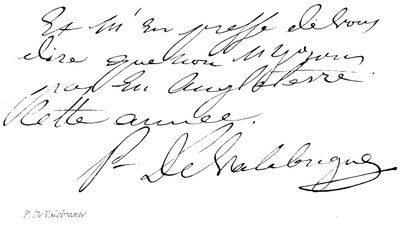 Et m'En presse de Vous
dire que nou
pas En Angleterre
Cette année.
P. De Valabregue
P. De Valebreque.